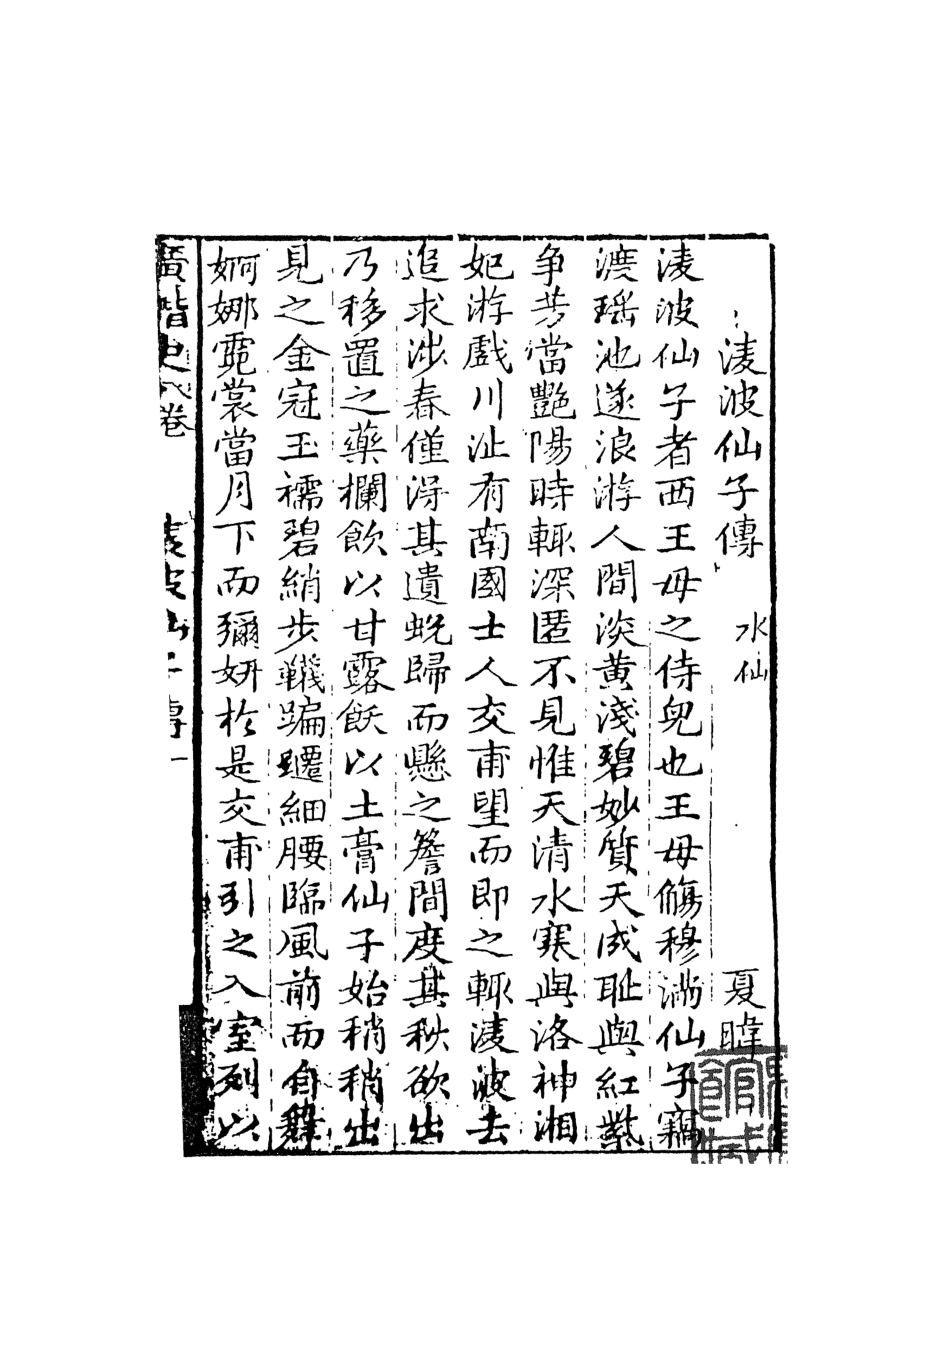 淩波仙子傳 水仙 夏暐
淩波仙子者西王母之侍兒也王母觴穆滿仙子竊
渡瑤池遂浪游人間淡黄淺碧妙質天成耻與紅紫
争芳當艷陽時輒深匿不見惟天清水寒與洛神湘
妃游戲川沚有南國士人交甫望而即之輒淩波去
追求涉春僅得其遺蛻歸而懸之簷間度其秋欲出
乃移置之藥欄飲以甘露飫以土膏仙子始稍稍出
見之金冠玉襦碧綃步韈蹁躚細腰臨風前而自舞
婀娜霓裳當月下而彌妍於是交甫引之入室列以
廣諧史卷八 淩波仙子傳 一